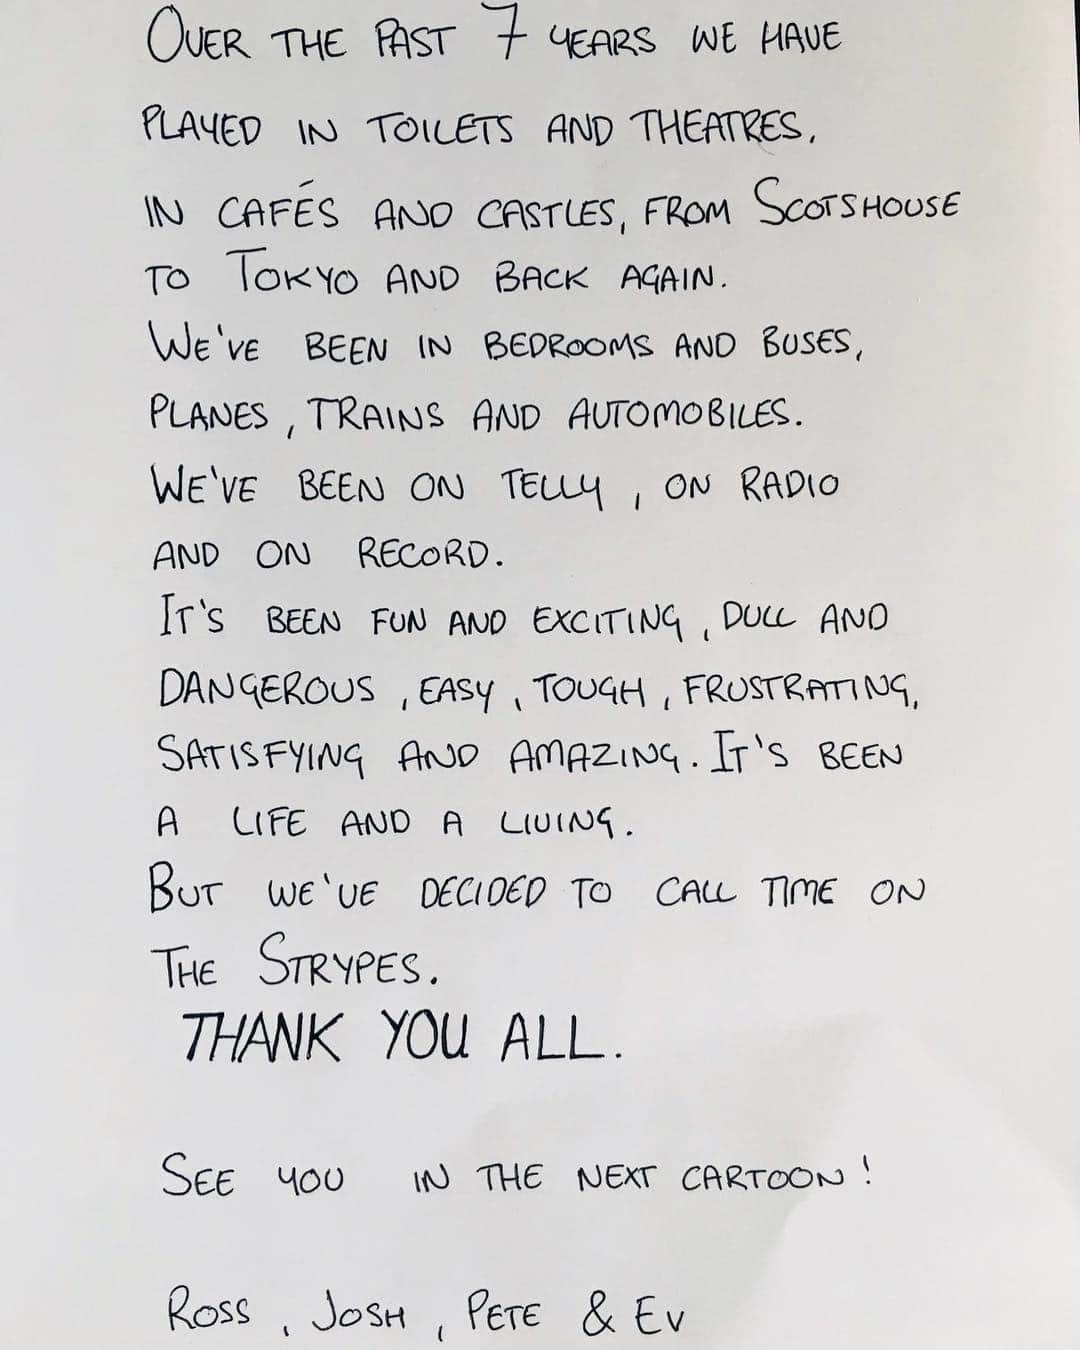 OVER THE PAST 7 YEARS WE HAVE
PLAYED IN TOILETS AND THEATRES,
IN CAFÉS AND CASTLES, FROM SCOTSHOUSE
TO TOKYO AND BACK AGAIN.
WE'VE BEEN IN BEDROOMS AND BUSES,
PLANES, TRAINS AND AUTOMOBILES.
WE'VE BEEN ON TELLY, ON RADIO
AND ON RECORD.
IT'S BEEN FUN AND EXCITING, DULL AND
DANGEROUS, EASY, TOUGH, FRUSTRATING,
SATISFYING AND AMAZING. IT'S BEEN
A LIFE AND A LIVING.
BUT WE'VE DECIDED TO CALL TIME ON
THE STRYPES.
THANK YOU ALL.
SEE YOU IN THE NEXT CARTOON!
ROSS, JOSH, PETE & EV